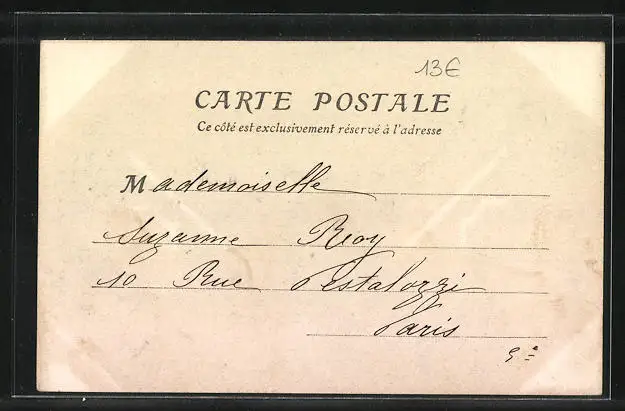 13€
CARTE POSTALE
Ce côté est exclusivement réservé à l'adresse
Mademoiselle
Suzanne
10 Rue Pestalozzi
Paris
5e